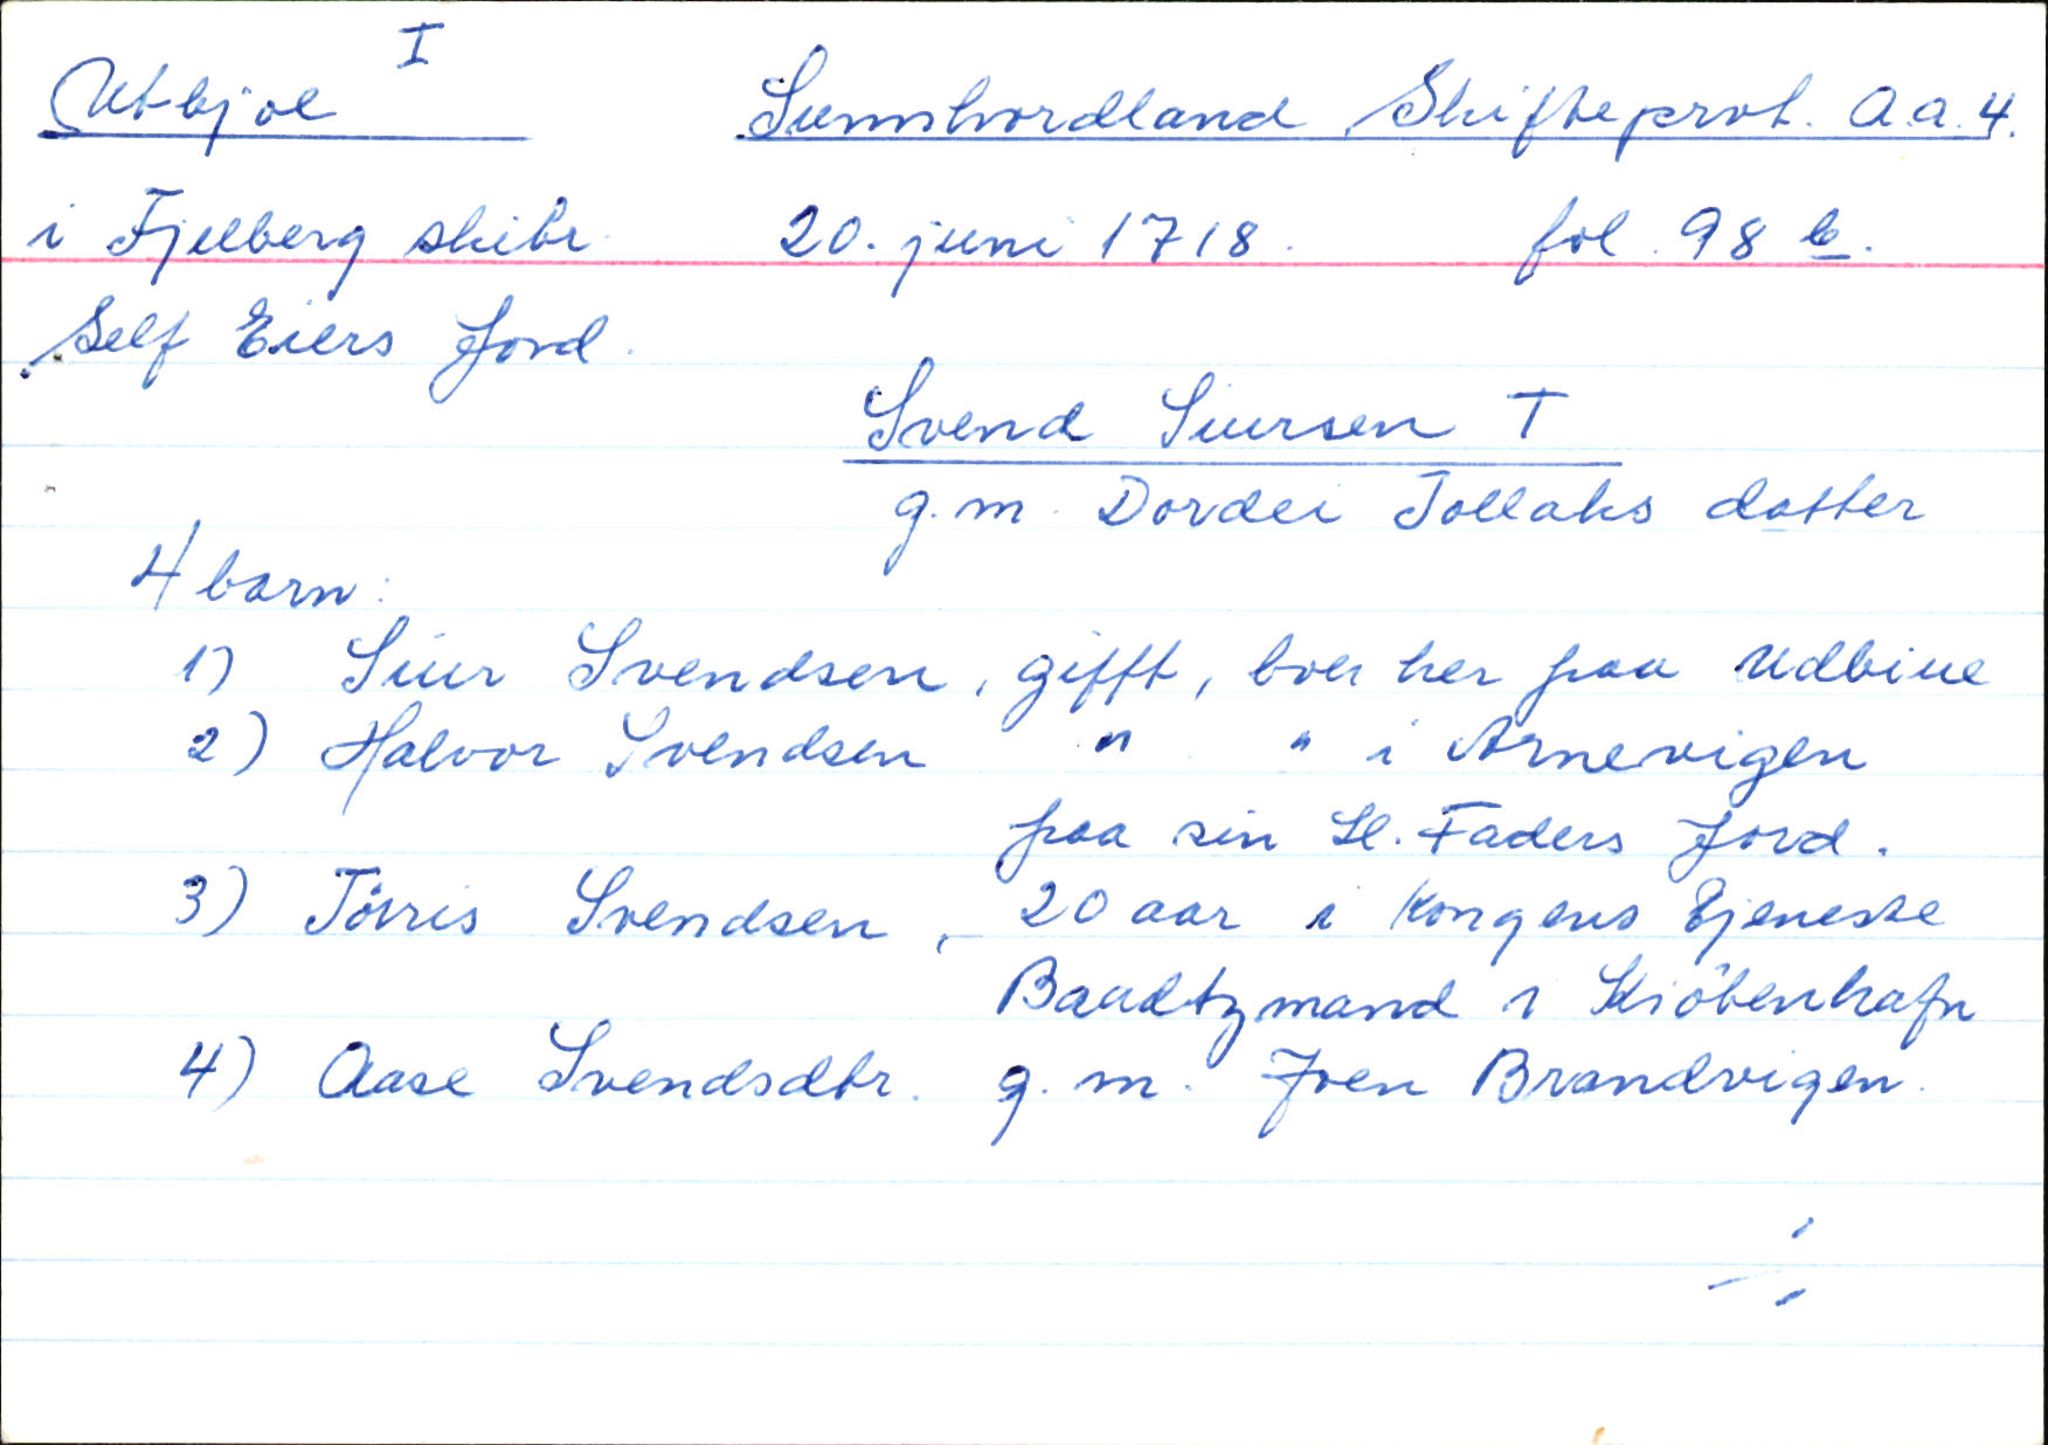 Utbjoe I Sunnhordland Skifteprot. A.a.4.
i Fjelberg skibr. 20. juni 1718. fol. 98 b.
Self Eiers Jord.
Svend Siursen †
g.m. Dordei Tollaks datter
4 barn:
1) Siur Svendsen, gifft, boer her paa Udbiue
2) Halvor Svendsen " " i Arnevigen
paa sin Sl. Faders Jord.
3) Törris Svendsen, - 20 aar i Kongens Tjeneste
Baadtzmand i Kiöbenhafn
4) Aase Svendsdtr. g.m. Joen Brandvigen.